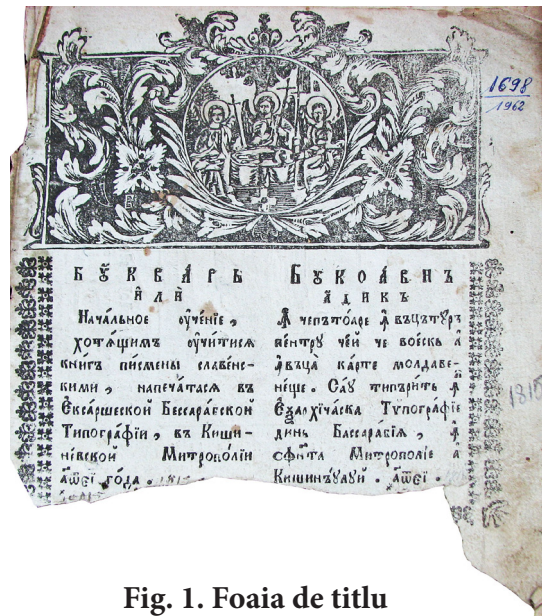 1698
1962
БꙊКВА́РЬ
И҆ЛЍ
Нача́льное оу҆че́нїе,
хотѧ́щимъ оу҆чи́тисѧ
кни́гъ пи́смены славе́н-
скими, напеча́тасѧ въ
Е҆ѯа́ршеской Бессара́бской
Типогра́фїи, въ Киши-
не́вской Митропо́лїи
а҂ѿєі го́да.
БꙋКОА́ВНЪ
А҆ДИКЪ
Ꙟ҆чепъто́аре ꙟ҆въцъту́ръ
пе́нтрꙋ че́й че воє́скъ а҆
ꙟ҆въца̀ ка́рте молдаве-
не́ще. Са́ꙋ типъри́тъ ꙟ҆
Е҆ѯархїча́ска Тѵпогра́фїе
ди́нъ Бассара́бїѧ, ꙟ҆
сфи́нта Митропо́лїе а
Кишинъ́ꙋлꙋй. а҂ѿєі.
1815
Fig. 1. Foaia de titlu